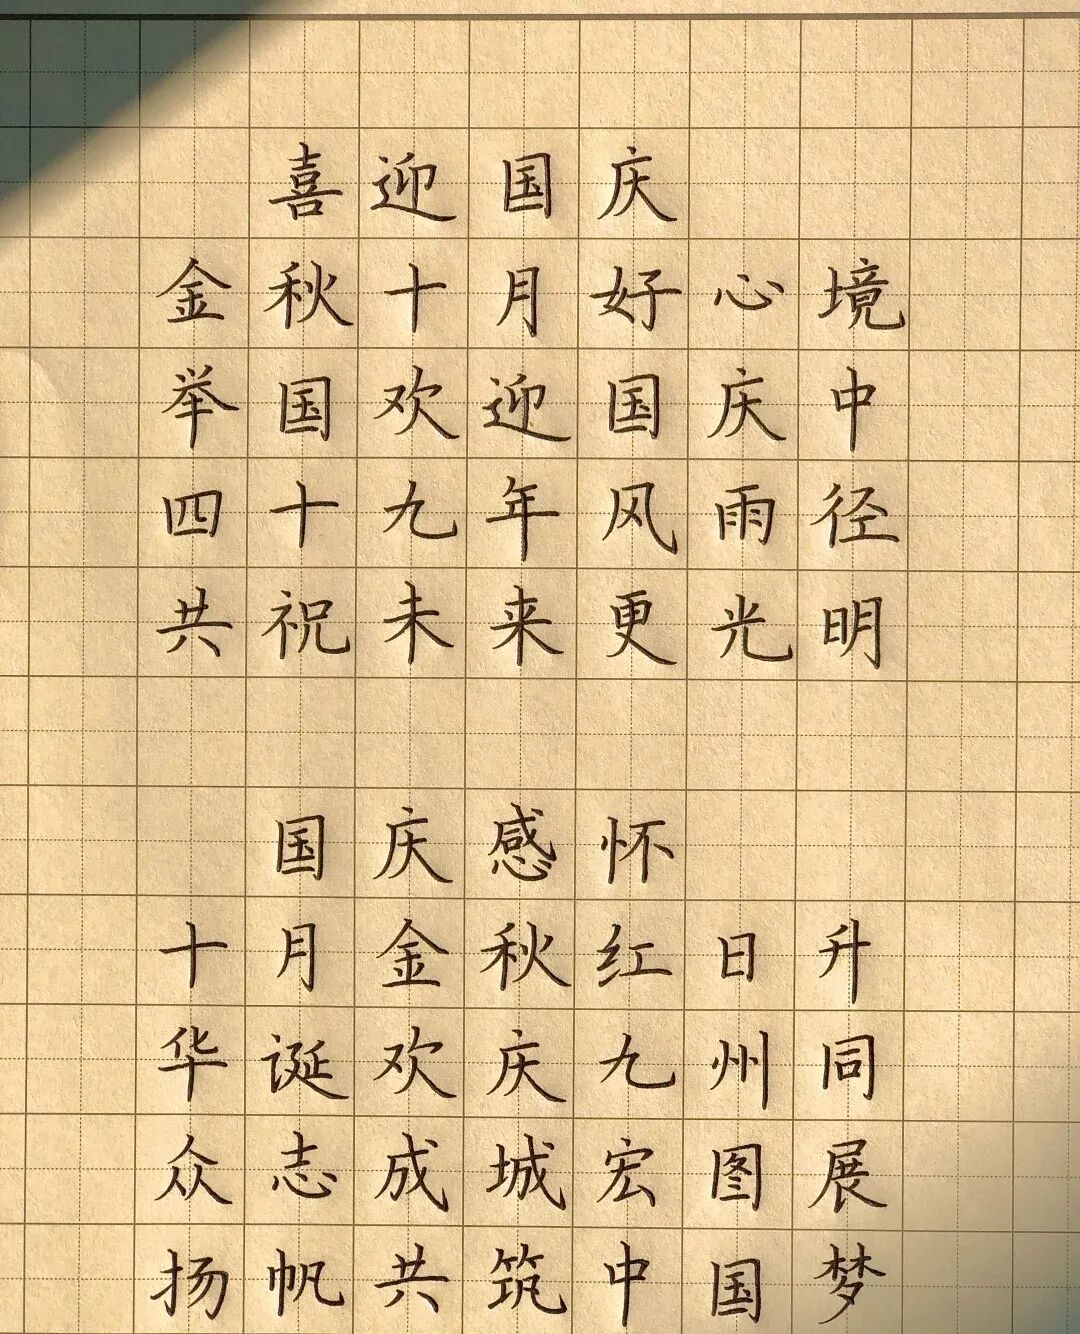 喜迎国庆
金秋十月好心境
举国欢迎国庆中
四十九年风雨径
共祝未来更光明
国庆感怀
十月金秋红日升
华诞欢庆九州同
众志成城宏图展
扬帆共筑中国梦